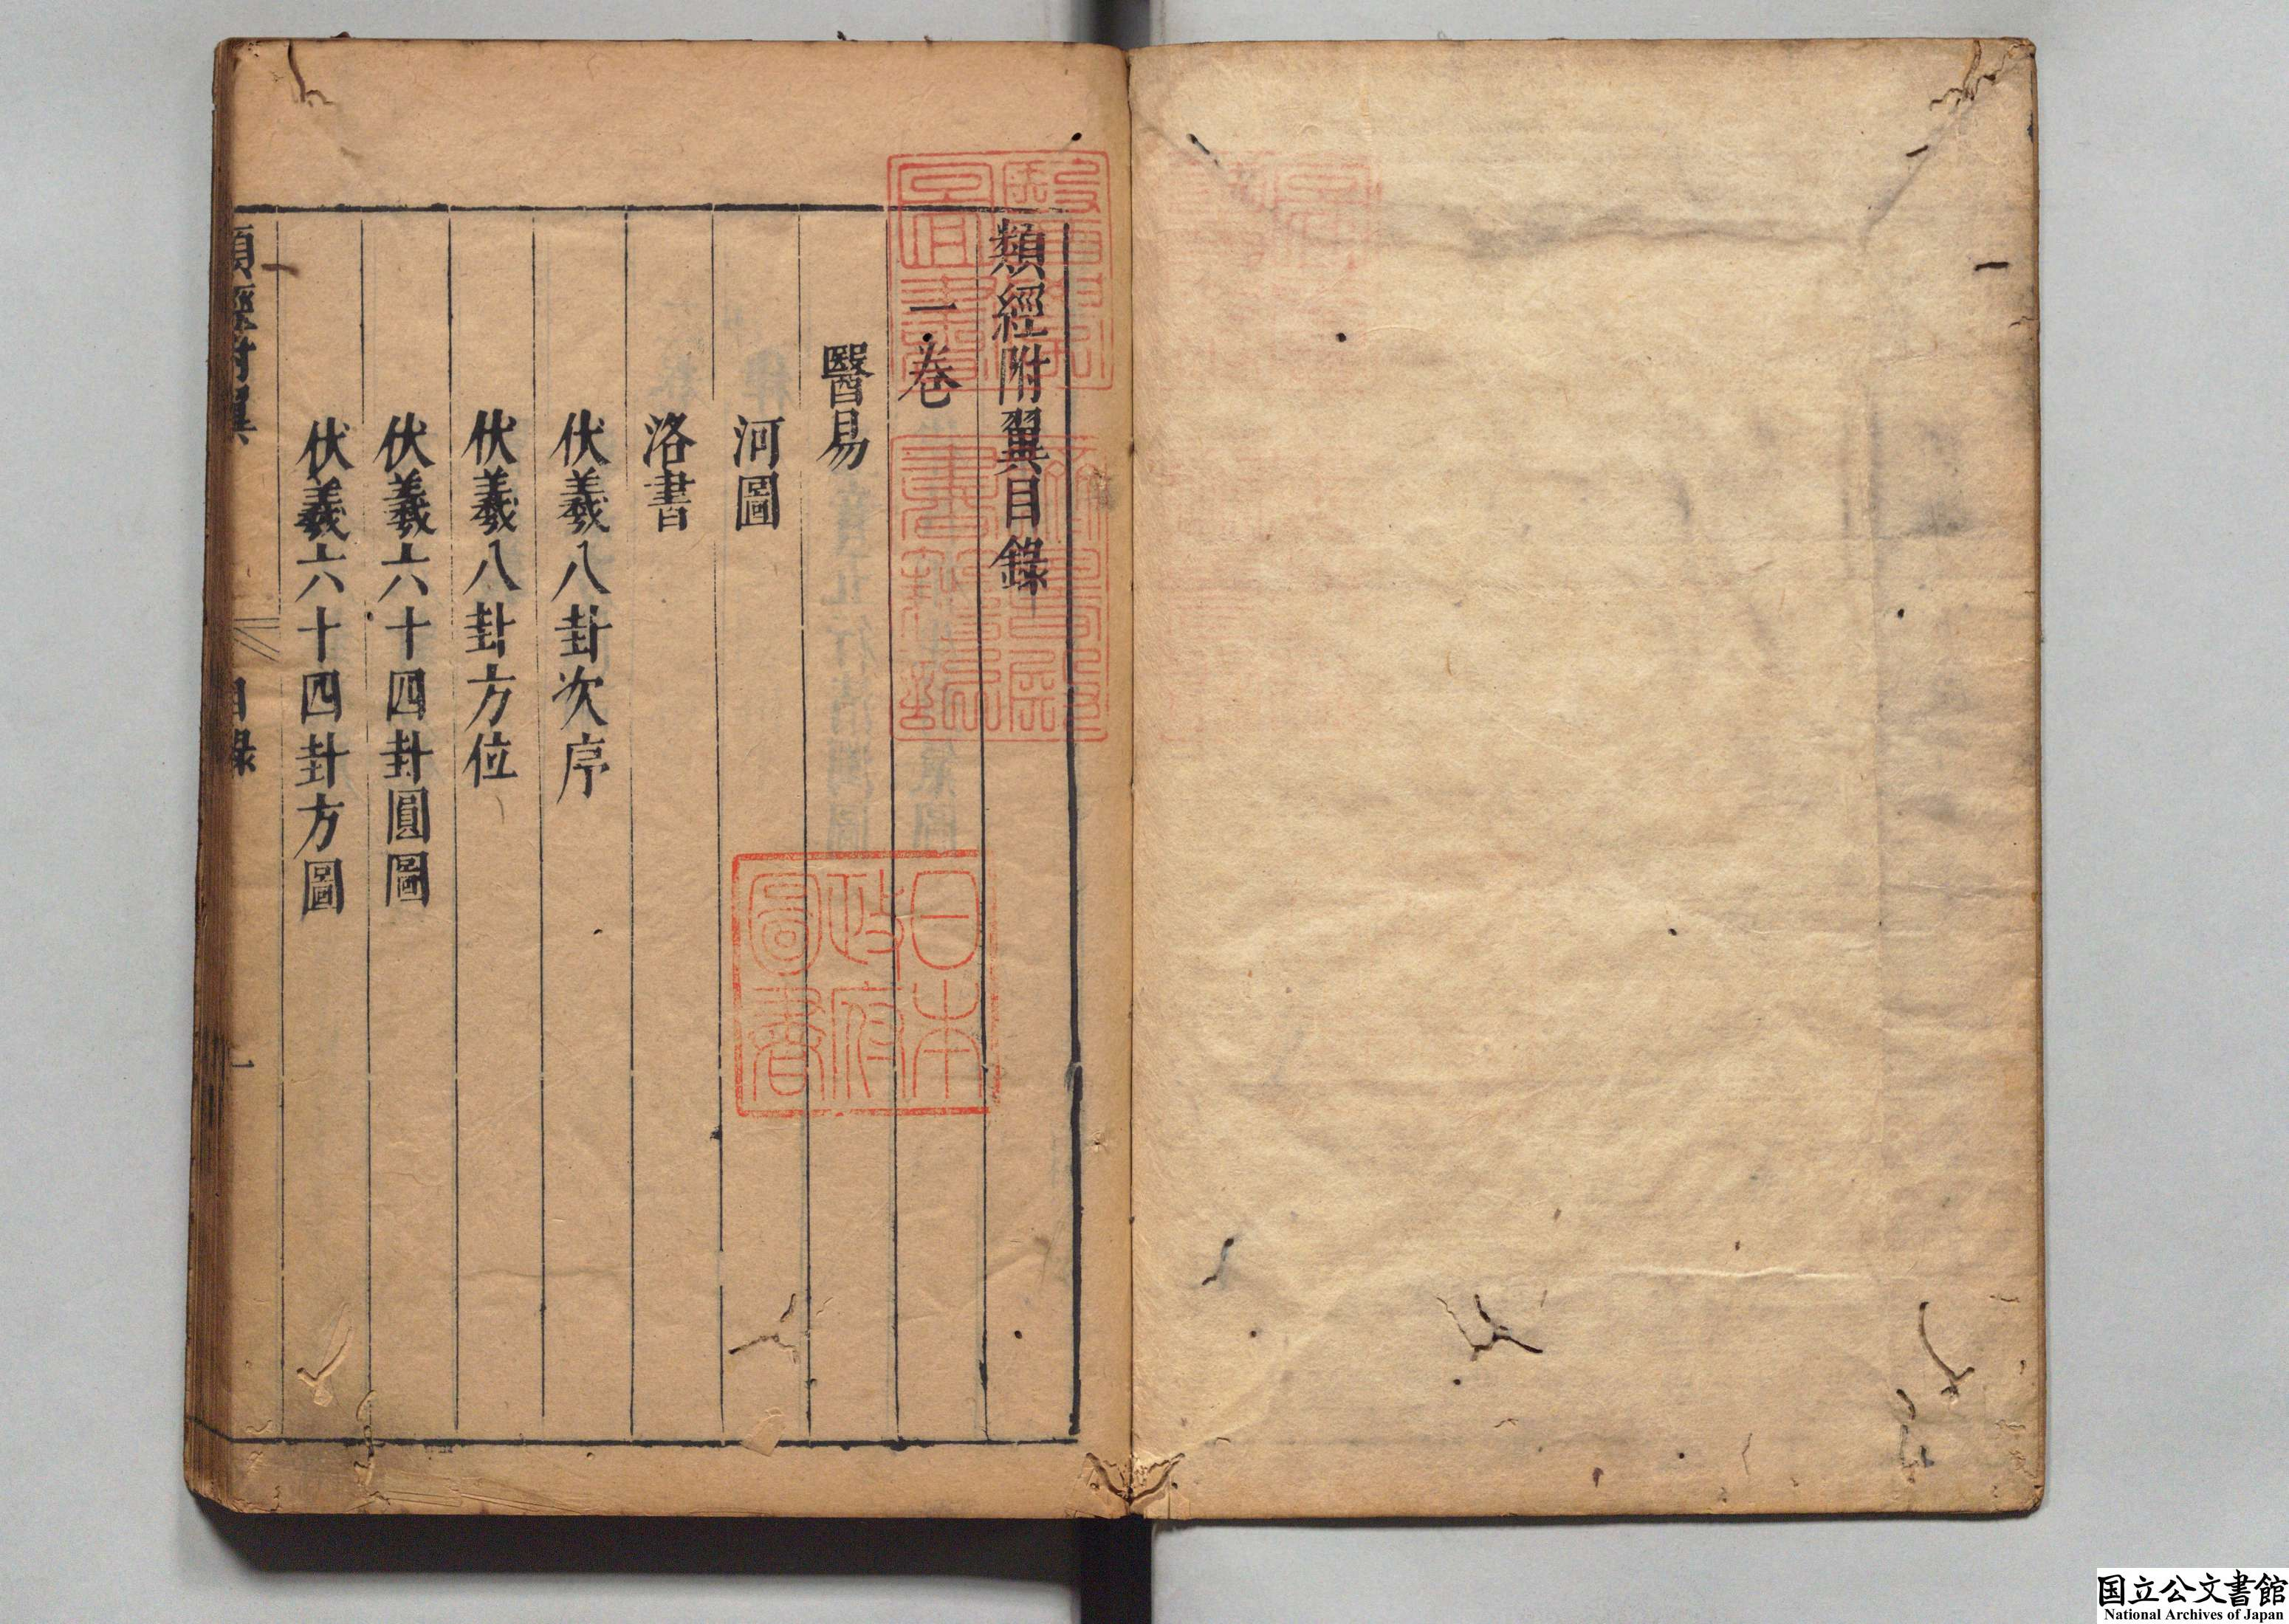 類經附翼目錄
一卷
醫易
河圖
洛書
伏羲八卦次序
伏羲八卦方位
伏羲六十四卦圓圖
伏羲六十四卦方圖
類經附翼
目錄
一
日本
政府
圖書
国立公文書館
National Archives of Japan